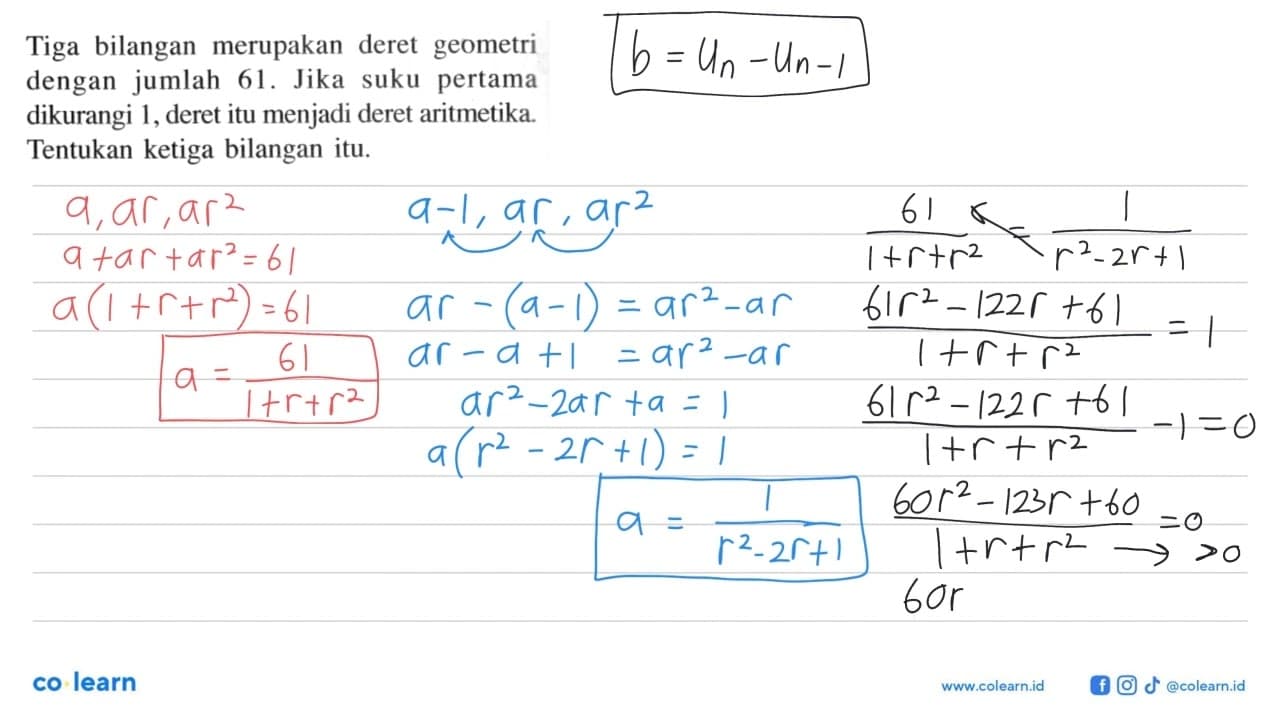 Tiga bilangan merupakan deret geometri
dengan jumlah 61. Jika suku pertama
dikurangi 1, deret itu menjadi deret aritmetika.
Tentukan ketiga bilangan itu.
b = Un - Un-1
a, ar, ar²
a + ar + ar² = 61
a(1 + r + r²) = 61
a = 61/(1 + r + r²)
a-1, ar, ar²
ar - (a-1) = ar² - ar
ar - a + 1 = ar² - ar
ar² - 2ar + a = 1
a(r² - 2r + 1) = 1
a = 1/(r² - 2r + 1)
61/(1 + r + r²) = 1/(r² - 2r + 1)
(61r² - 122r + 61)/(1 + r + r²) = 1
(61r² - 122r + 61)/(1 + r + r²) - 1 = 0
(60r² - 123r + 60)/(1 + r + r²) = 0
→ >0
60r
co learn
www.colearn.id
@colearn.id